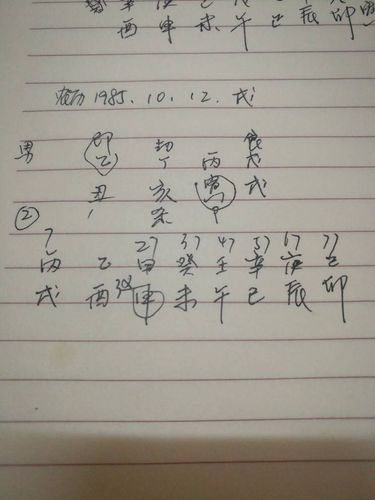 酉 申 未 午 巳 辰 卯
农历 1985.10.12.戌
男 印 劫 食
乙 丁 丙 戊
丑 亥 寅 戌
杀
②
7 27 37 47 57 67 77
丙 乙 甲 癸 壬 辛 庚 己
戌 酉 申 未 午 巳 辰 卯